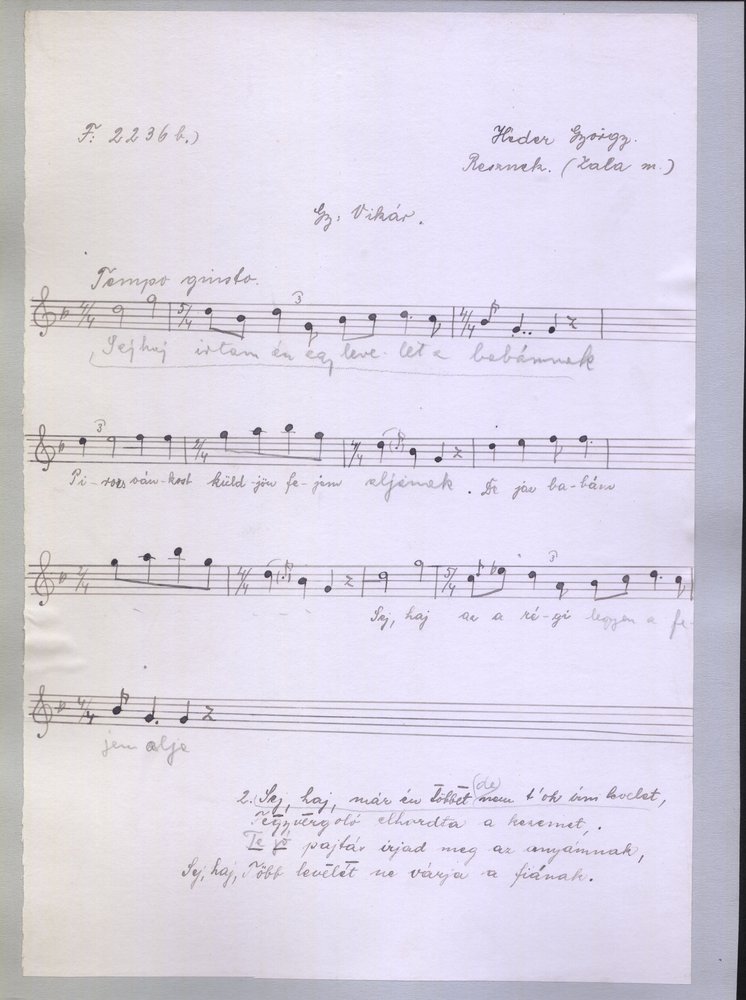 F: 2236 b.)
Heder György.
Resznek. (Zala m.)
Gy: Vikár.
Tempo giusto.
Sejhaj irtam én egy leve- let a babámnak
Pi- ros ván-kost küld-jön fe-jem aljának. De jaz ba-bám
Sej, haj az a ré-gi legyen a fe-
jem alja
2. Sej, haj, már én többet (de) nem t'ok irni levelet,
elhordta a kezemet,
Te jó pajtás irjad meg az anyámnak,
Sej, haj, Több levelet ne várja a fiának.